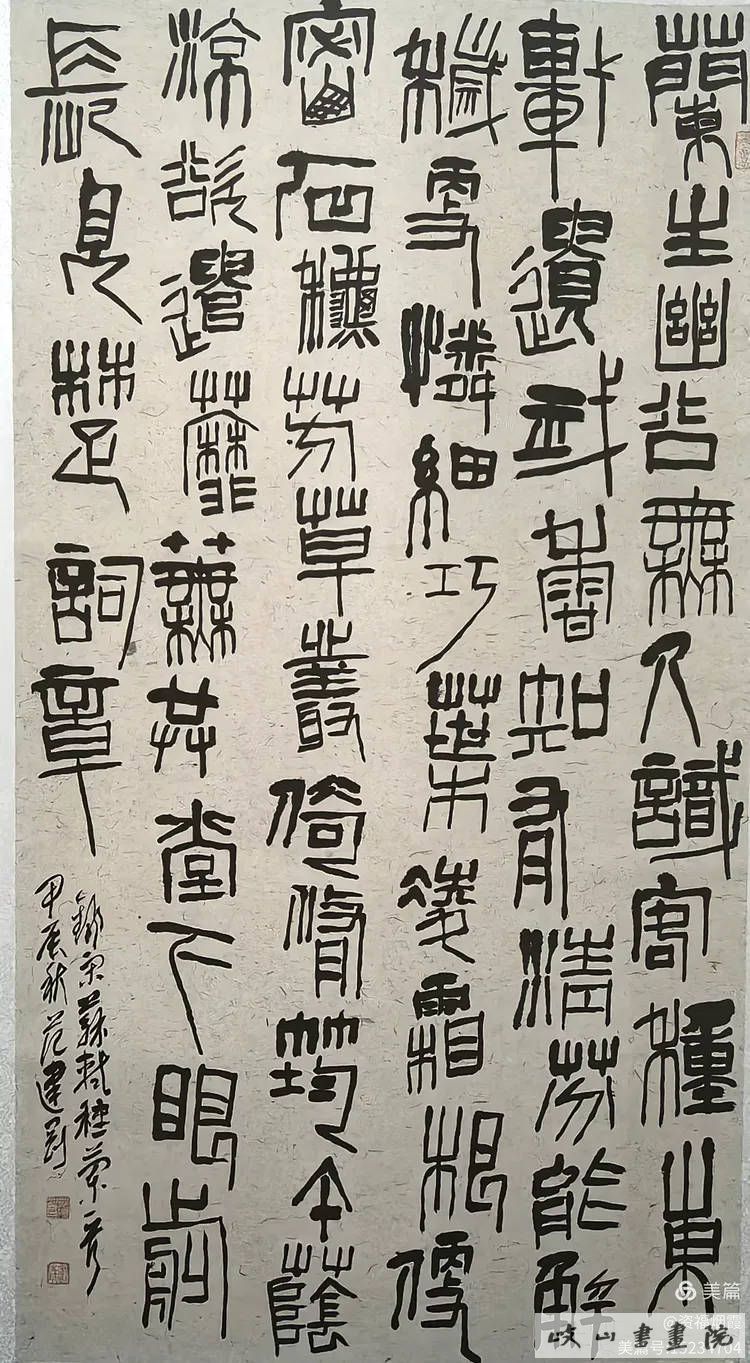 蘭生幽谷無人識客種東
軒遺我香知有清芬能解
穢更憐細巧葉凌霜根便
密石穐芳草叢倚脩筠午蔭
涼欲遣蘼蕪共堂下眼前
長見楚詞章
錄宋蘇軾種蘭一首
甲辰秋范建剛
美篇
@资福烟霞
美篇号
岐山書畫院